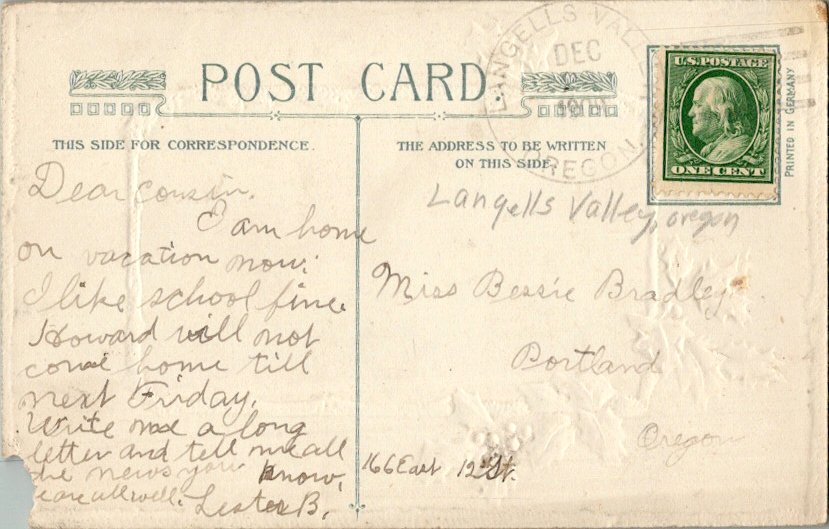 POST CARD
THIS SIDE FOR CORRESPONDENCE.
THE ADDRESS TO BE WRITTEN
ON THIS SIDE
LANGELLS VALLEY
DEC
OREGON.
U.S. POSTAGE
ONE CENT
PRINTED IN GERMANY
Langells Valley, oregon
Dear cousin.
I am home
on vacation now.
I like school fine.
Howard will not
come home till
next Friday.
Write me a long
letter and tell me all
the news you know.
are all well. Lester B.
Miss Bessie Bradley
Portland
Oregon
166 East 12th St.